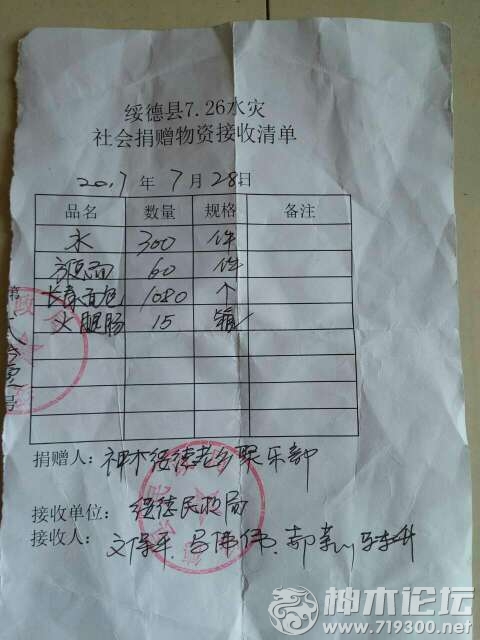 绥德县7.26水灾
社会捐赠物资接收清单
2017年7月28日
品名 数量 规格 备注
水 300 件
方便面 60 件
长香面包 1080 个
火腿肠 15 箱
捐赠人：神木绥德老乡俱乐部
接收单位：绥德民政局
接收人：
神木论坛
www.719300.net